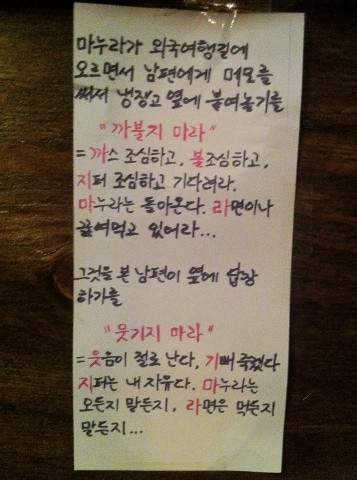 마누라가 외국여행길에
오르면서 남편에게 메모를
써서 냉장고 옆에 붙여놓기를
"까불지 마라"
= 까스 조심하고, 불조심하고,
지퍼 조심하고 기다려라.
마누라는 돌아온다. 라면이나
끓여먹고 있어라...
그것을 본 남편이 옆에 답장
하기를
"웃기지 마라"
= 웃음이 절로 난다, 기뻐 죽겠다
지퍼는 내 자유다. 마누라는
오든지 말든지, 라면은 먹든지
말든지...